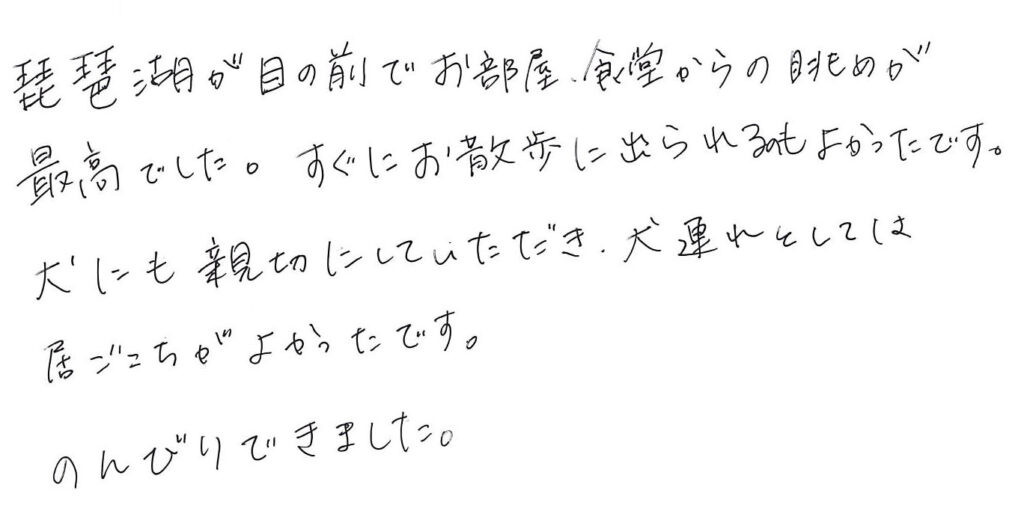 琵琶湖が目の前でお部屋、食堂からの眺めが
最高でした。すぐにお散歩に出られるのもよかったです。
犬にも親切にしていただき、犬連れとしては
居ごこちがよかったです。
のんびりできました。